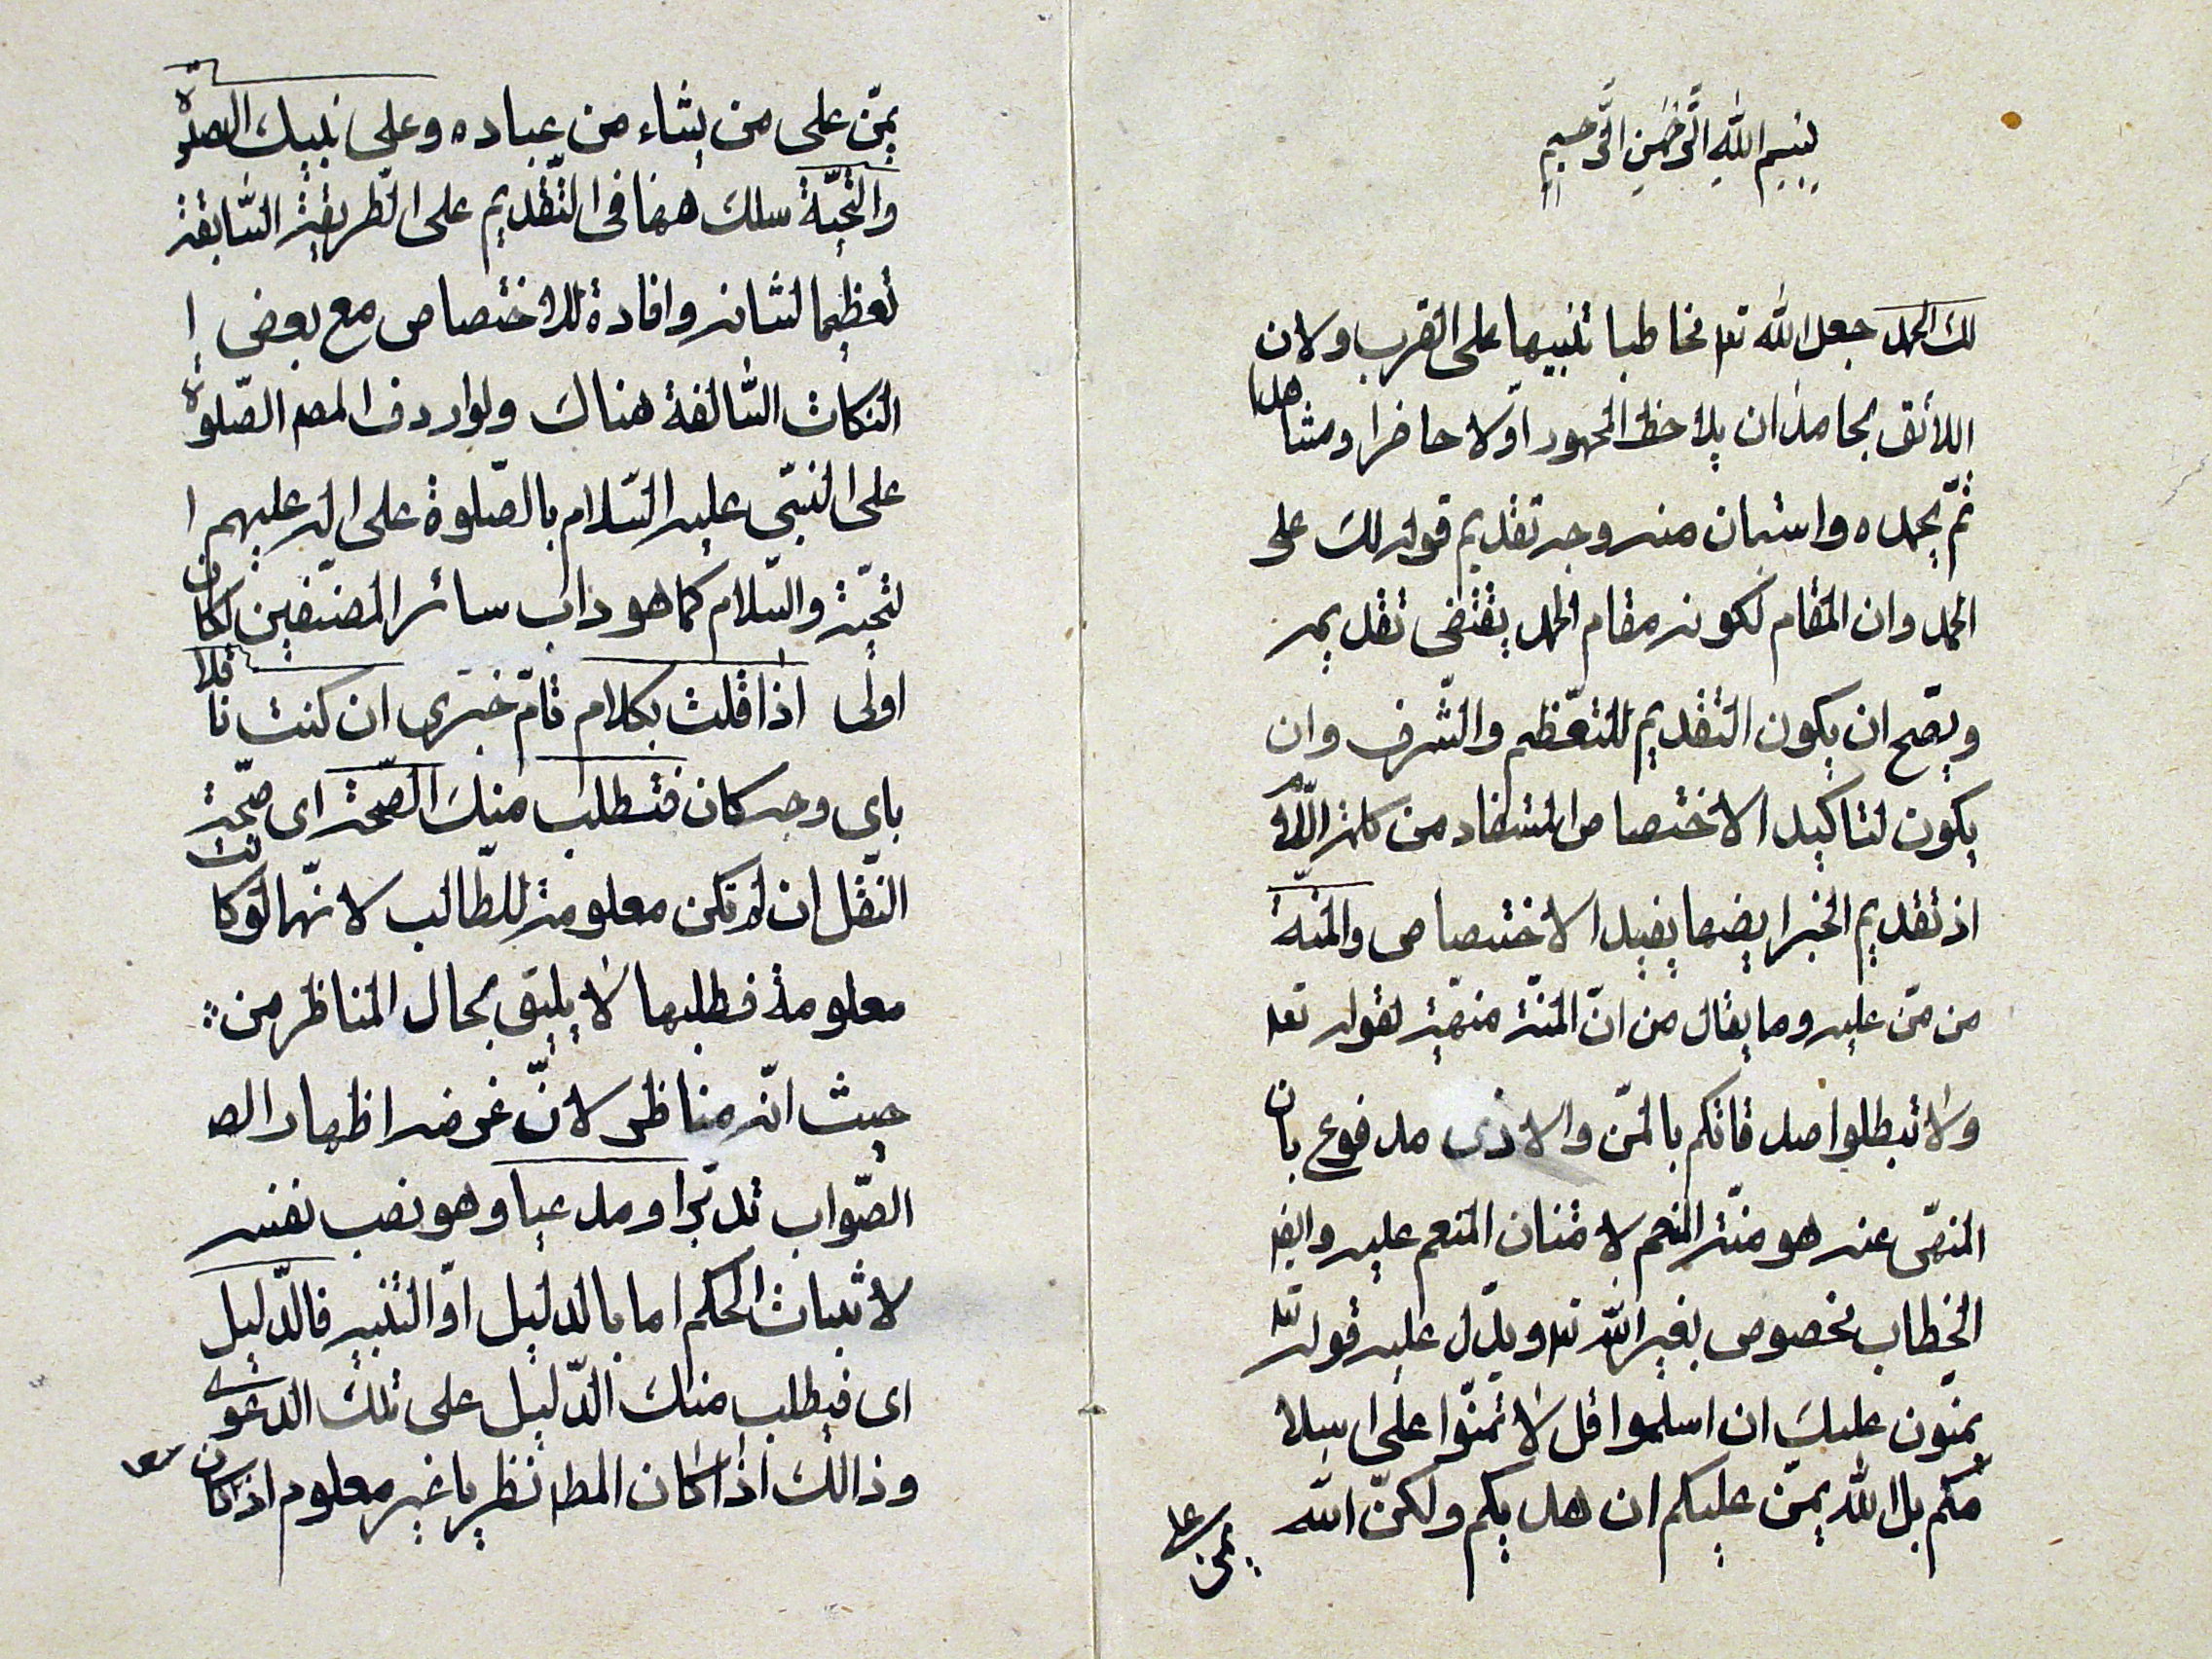 بسم الله الرحمن الرحيم
لك الحمد جعل الله تعه مخاطبا تنبيها على القرب ولان
اللائق بحامده ان يلاحظ المحمود اولا حاضرا ومشاهدا
ثمّ يحمده واستبان منه وجه تقديم قوله لك على
الحمد وان المقام لكونه مقام الحمد يقتضى تقديمه
ويصح ان يكون التقديم للتعظيم والشرف وان
يكون لتاكيد الاختصاص المستفاد من كلمة اللام
اذ تقديم الخبر ايضها يفيد الاختصاص والمنة
من منّ عليه وما يقال من انّ المنّة منهيّة لقوله تعه
ولا تبطلوا صدقاتكم بالمنّ والاذى مدفوع بان
المنهّى عنه هو منّة المنعم لا متنان المنعم عليه وايضه
الخطاب مخصوص بغير الله تعه ويدّل عليه قوله تعه
يمنّون عليك ان اسلموا قل لا تمنّوا على اسلا
مكم بل الله يمنّ عليكم ان هديكم ولكنّ الله
يمن على
يمنّ على من يشاء من عباده وعلى نبيك الصلوة
والتحيّة سلك ههنا فى التّقديم على الطّريقة السّابقة
تعظيما لشانه وافادة للاختصاص مع بعض ا
النكات السّالفة هناك ولو اردف المصه الصّلوة
على النبّى عليه السّلام بالصّلوة على اله عليهم ا
لتحيّة والسّلام كما هو داب سائر المصنّفين لكان
اولى اذا قلت بكلام تامّ خبرى ان كنت ناقلا
باى وجه كان فتطلب منك الصّحة اى صحّة
النّقل ان لم تكن معلومة للطّالب لانّها لو كانت
معلومة فطلبها لا يليق بحال المناظر من
حيث انّه مناظر لانّ غرضه اظهار الص
الصّواب تدبّرا ومدعيا وهو نصب نفسه
لا ثبات الحكم اما بالدليل او التنبيه فالدّليل
اى فيطلب منك الدّليل على تلك الدعوى
وذالك اذا كان المطه نظريا غير معلوم اذ كان معه